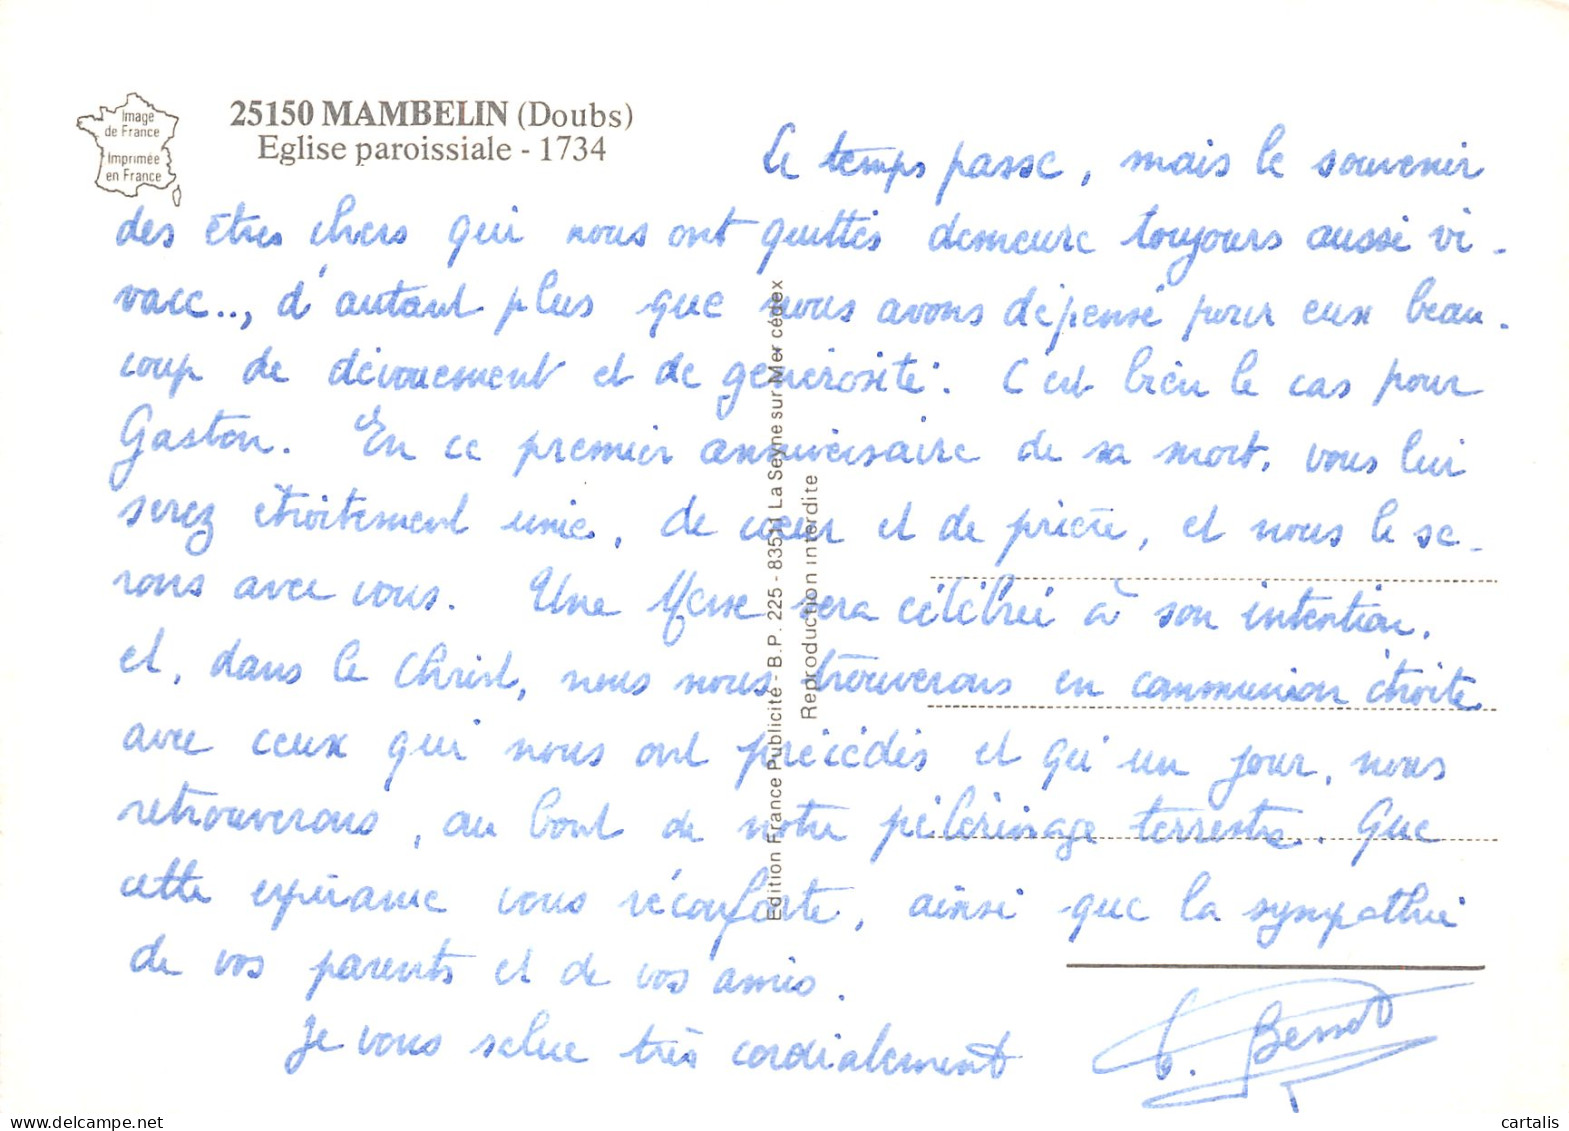 Image
de France
Imprimée
en France
25150 MAMBELIN (Doubs)
Eglise paroissiale - 1734
Le temps passe, mais le souvenir
des êtres chers qui nous ont quittés demeure toujours aussi vi-
vace.., d'autant plus que nous avons dépensé pour eux beau-
coup de dévouement et de générosité. C'est bien le cas pour
Gaston. En ce premier anniversaire de sa mort, vous lui
serez étroitement unie, de cœur et de prière, et nous le se-
rons avec vous. Une Messe sera célébrée à son intention,
et, dans le Christ, nous nous trouverons en communion étroite
avec ceux qui nous ont précédés et qu'un jour, nous
retrouverons, au bout de notre pèlerinage terrestre. Que
cette espérance vous réconforte, ainsi que la sympathie
de vos parents et de vos amis.
Je vous salue très cordialement
Edition France Publicité - B.P. 225 - 83511 La Seyne sur Mer cédex
Reproduction interdite
cartalis